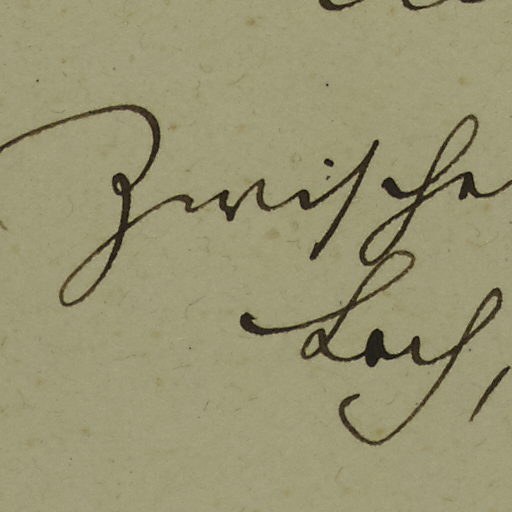 Zwische
Loch,